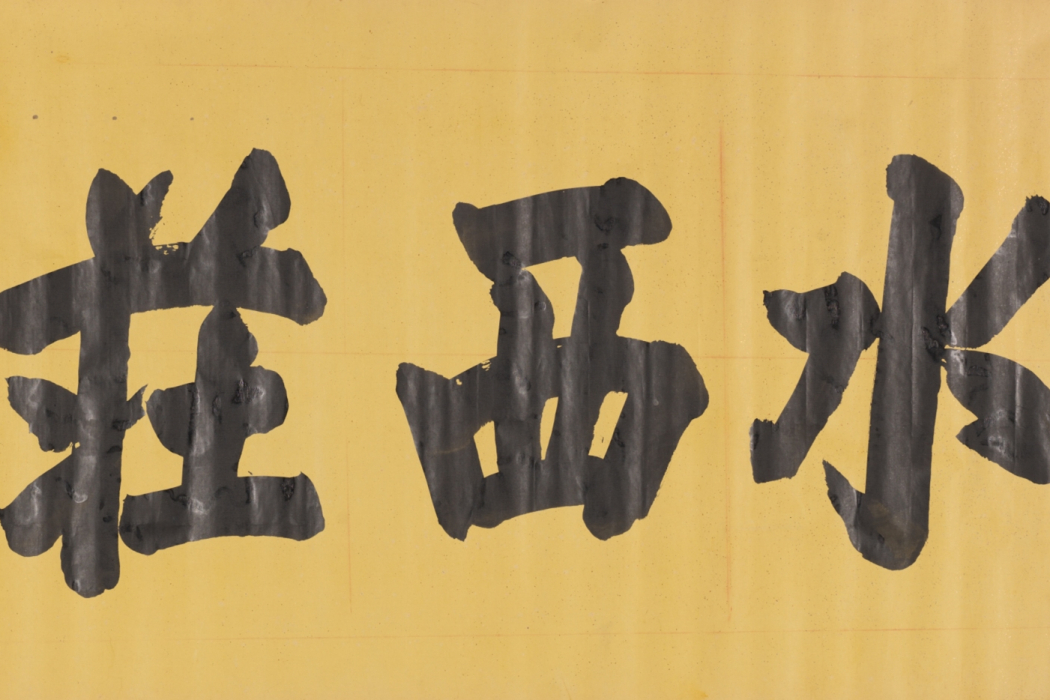 水西莊